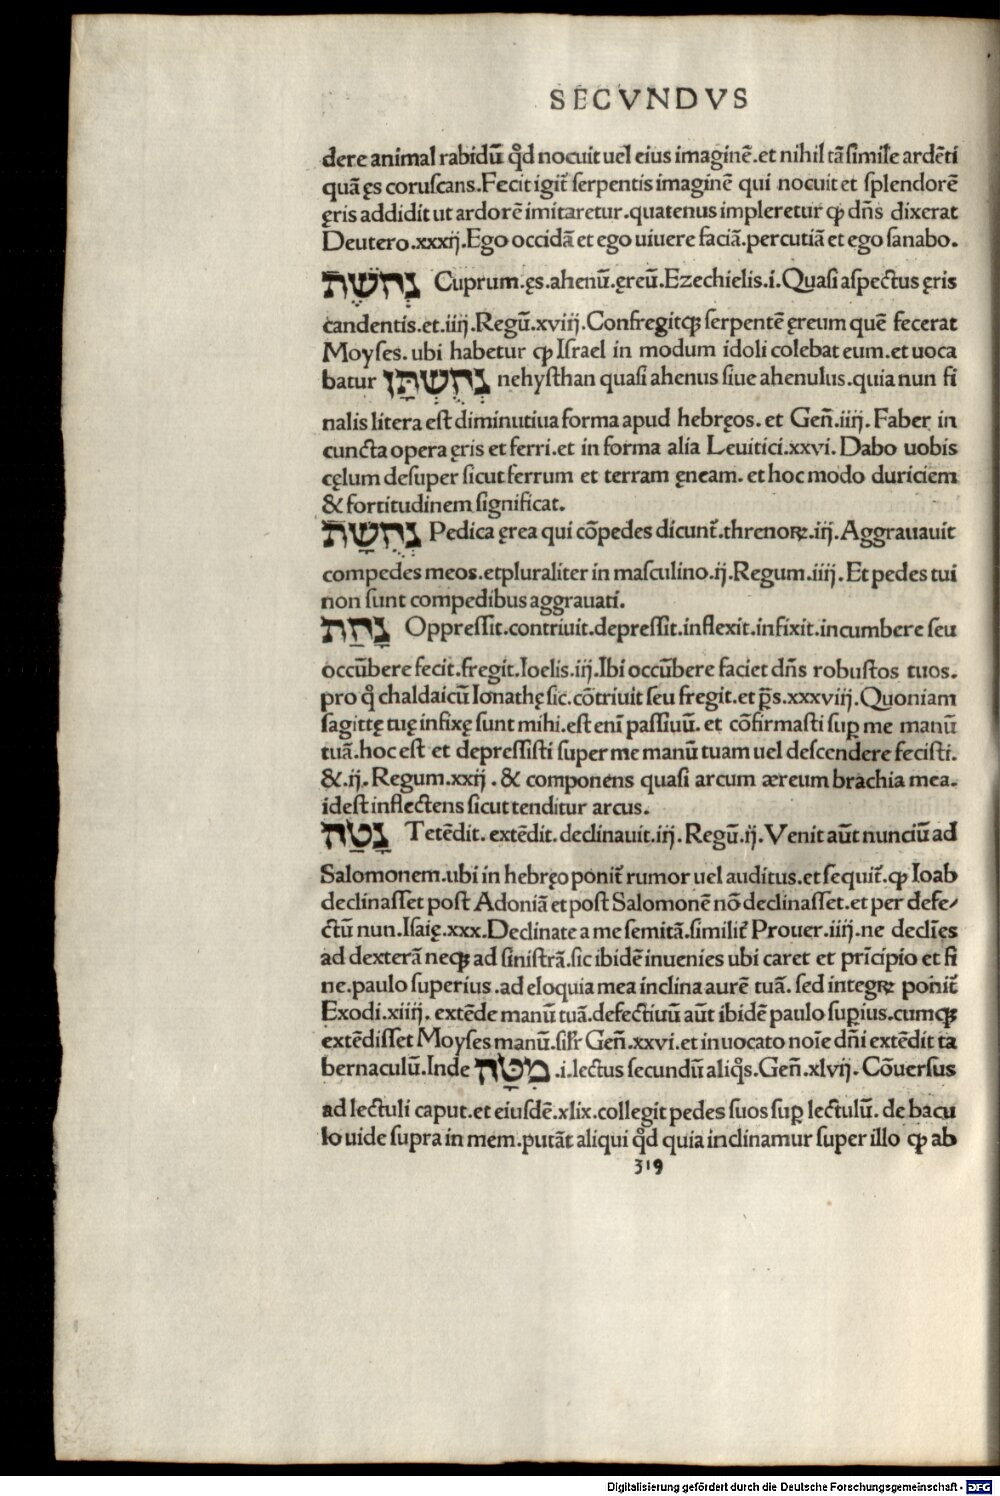 SECVNDVS
dere animal rabidū qd̄ nocuit uel eius imaginē.et nihil tā simile ardēti
quā ęs coruscans.Fecit igit̄ serpentis imaginē qui nocuit et splendorē
ęris addidit ut ardorē imitaretur.quatenus impleretur ꝙ dn̄s dixerat
Deutero.xxxij.Ego occidā et ego uiuere faciā.percutiā et ego sanabo.
נְחֹשֶׁת Cuprum.ęs.ahenū.ęreū.Ezechielis.i.Quasi aspectus ęris
candentis.et.iiij.Regū.xviij.Confregitqꝫ serpentē ęreum quē fecerat
Moyses.ubi habetur ꝙ Israel in modum idoli colebat eum.et uoca
batur נְחֻשְׁתָּן nehysthan quasi ahenus siue ahenulus.quia nun fi
nalis litera est diminutiua forma apud hebręos. et Gen̄.iiij. Faber in
cuncta opera ęris et ferri.et in forma alia Leuitici.xxvi. Dabo uobis
cęlum desuper sicut ferrum et terram ęneam. et hoc modo duriciem
& fortitudinem significat.
נְחֻשַׁת Pedica ęrea qui cōpedes dicunt̄.threnoꝝ.iij.Aggrauauit
compedes meos.etpluraliter in masculino.ij.Regum.iiij. Et pedes tui
non sunt compedibus aggrauati.
נָחַת Oppressit.contriuit.depressit.inflexit.infixit.incumbere seu
occūbere fecit.fregit.Ioelis.iij.Ibi occūbere faciet dn̄s robustos tuos.
pro q̄ chaldaicū Ionathę sic.cōtriuit seu fregit.et p̄s.xxxviij.Quoniam
sagittę tuę infixę sunt mihi.est enī passiuū. et cōfirmasti suꝑ me manū
tuā.hoc est et depressisti super me manū tuam uel descendere fecisti.
&.ij.Regum.xxij. & componens quasi arcum æreum brachia mea.
idest inflectens sicut tenditur arcus.
נָטָה Tetēdit. extēdit. declinauit.iij. Regū.ij.Venit aūt nunciū ad
Salomonem.ubi in hebręo ponit̄ rumor uel auditus.et sequit̄.ꝙ Ioab
declinasset post Adoniā et post Salomonē nō declinasset.et per defe/
ctū nun.Isaię.xxx.Declinate a me semitā.similit̄ Prouer.iiij.ne declīes
ad dexterā neqꝫ ad sinistrā.sic ibidē inuenies ubi caret et prīcipio et fi
ne.paulo superius.ad eloquia mea inclina aurē tuā. sed integꝝ ponit̄
Exodi.xiiij. extēde manū tuā.defectiuū aūt ibidē paulo suꝑius.cumqꝫ
extēdisset Moyses manū.sil̄r Gen̄.xxvi.et inuocato noīe dn̄i extēdit ta
bernaculū.Inde מִטָּה .i.lectus secundū aliqs̄.Gen̄.xlvij. Cōuersus
ad lectuli caput.et eiusdē.xlix.collegit pedes suos suꝑ lectulū. de bacu
lo uide supra in mem.putāt aliqui qd̄ quia inclinamur super illo ꝙ ab
319
Digitalisierung gefördert durch die Deutsche Forschungsgemeinschaft - DFG